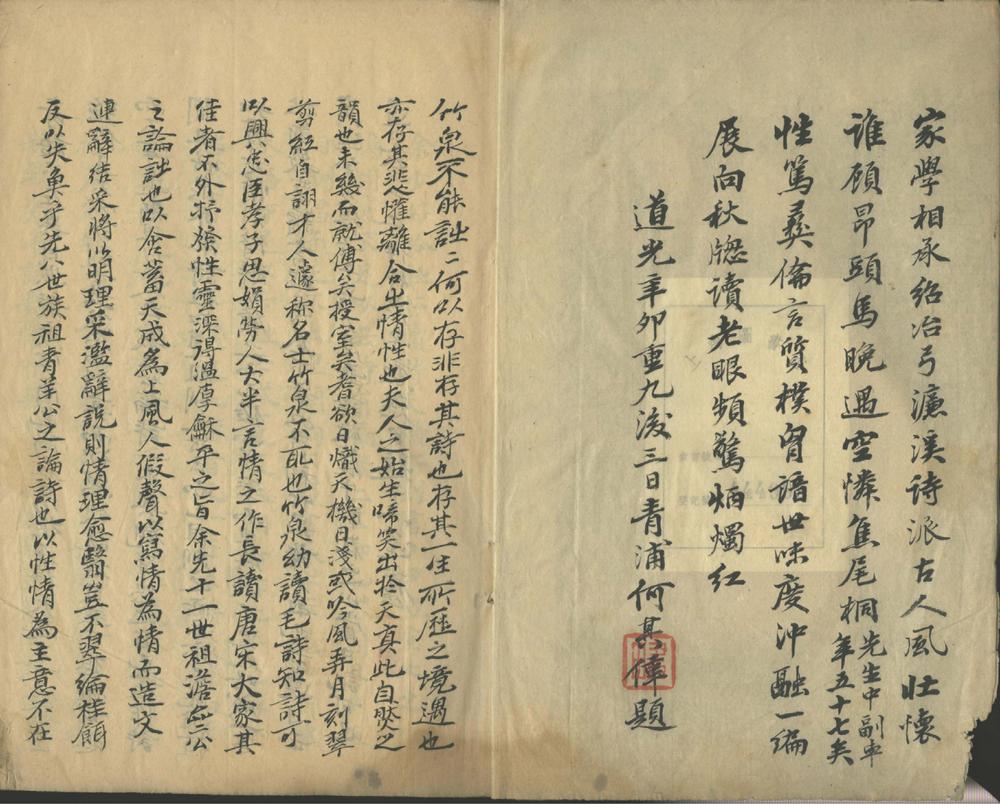 家學相承紹冶弓濂溪詩派古人風壯懷
誰顧昂頭馬晚遇空憐焦尾桐先生中副車年五十七矣
性篤彝倫言質樸胷諳世味度沖融一編
展向秋牕讀老眼頻驚炳燭紅
道光辛卯重九後三日青浦何其偉題
竹泉不能詩二何以存非存其詩也存其一生所歷之境遇也
亦存其悲懽離合之情性也夫人之始生啼笑出於天真此自然之
韻也未幾而就傅矣授室矣耆欲日熾天機日淺或吟風弄月刻翠
剪紅自詡才人遽稱名士竹泉不取也竹泉幼讀毛詩知詩可
以興忠臣孝子思婦勞人大半言情之作長讀唐宋大家其
佳者不外抒發性靈深得溫厚龢平之旨余先十一世祖澹公
之論詩也以含蓄天成為上風人假聲以寫情為情而造文
連辭結采將以明理采濫辭詭則情理愈翳豈不翠綸桂餌
反以失魚乎先八世族祖青羊公之論詩也以性情為主意不在